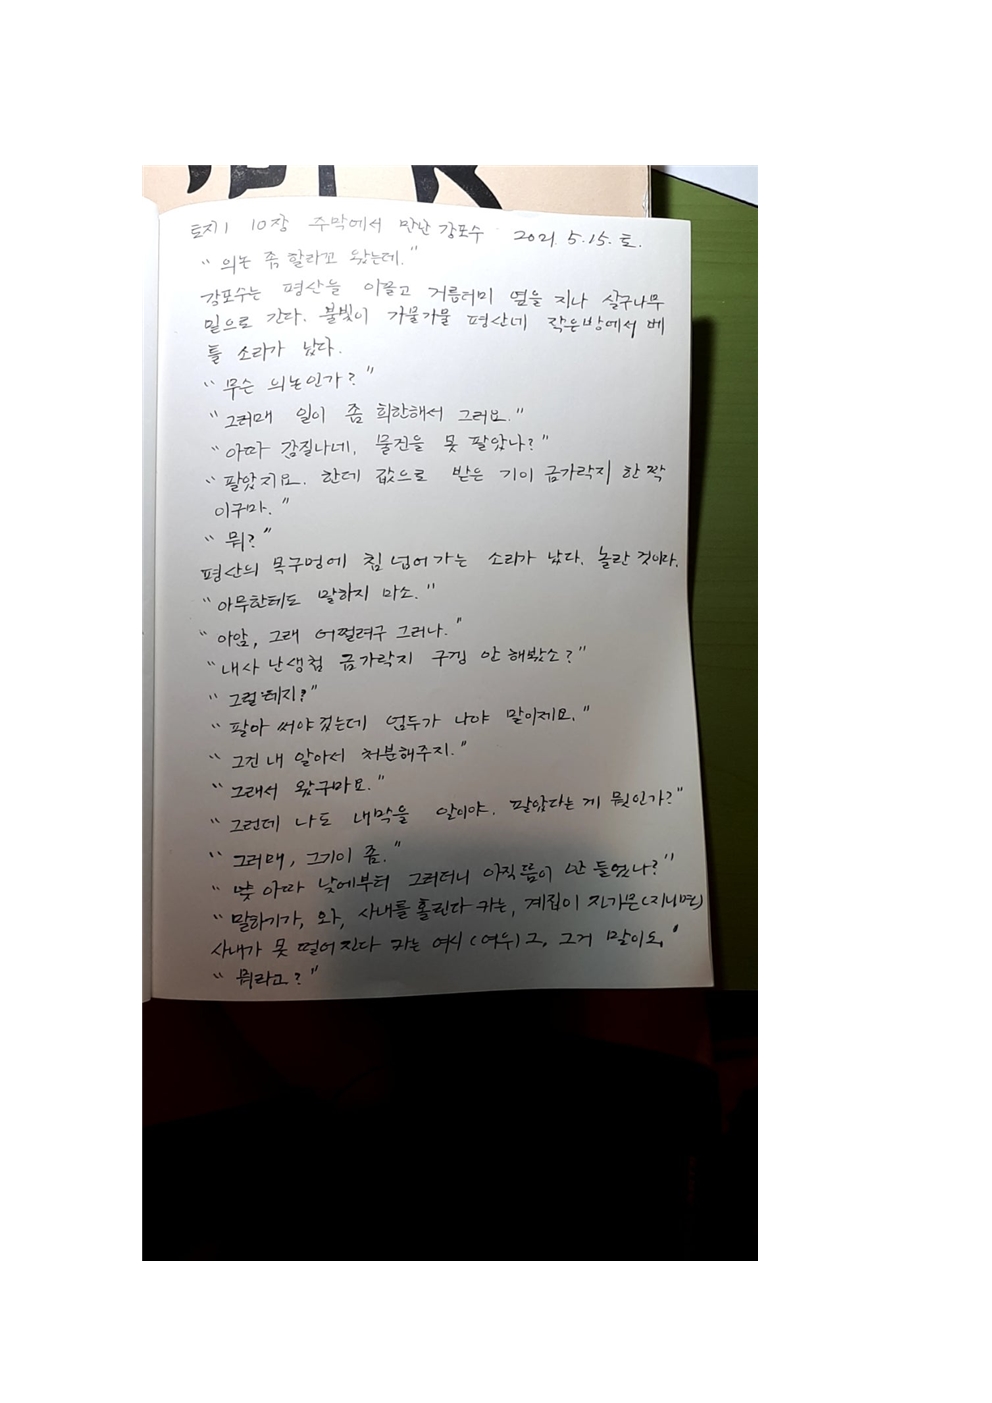 토지1 10장 주막에서 만난 강포수 2021. 5.15. 토.
“의논 좀 할라꼬 왔는데.”
강포수는 평산을 이끌고 거름더미 옆을 지나 살구나무
밑으로 간다. 불빛이 가물가물 평산네 작은방에서 베
틀 소리가 났다.
“무슨 의논인가?”
“그러매 일이 좀 희한해서 그러요.”
“아따 감질나네, 물건을 못 팔았나?”
“팔았지요. 한데 값으로 받은 기이 금가락지 한 짝
이구마.”
“뭐?”
평산의 목구멍에 침 넘어가는 소리가 났다. 놀란 것이다.
“아무한테도 말하지 마소.”
“아암, 그래 어쩔려구 그러나.”
“내사 난생첨 금가락지 구경 안 해봤소?”
“그럴테지?”
“팔아 써야겄는데 엄두가 나야 말이제요.”
“그건 내 알아서 처분해주지.”
“그래서 왔구마요.”
“그런데 나도 내막을 알아야. 팔았다는 게 뭣인가?”
“그러매, 그기이 좀.”
“아따 낮에부터 그러더니 아직 뜸이 안 들었나?”
“말하기가, 와, 사내를 홀린다 카는, 계집이 지가믄(지니면)
사내가 못 떨어진다 카는 여시(여우) 그, 그거 말이오.”
“뭐라고?”